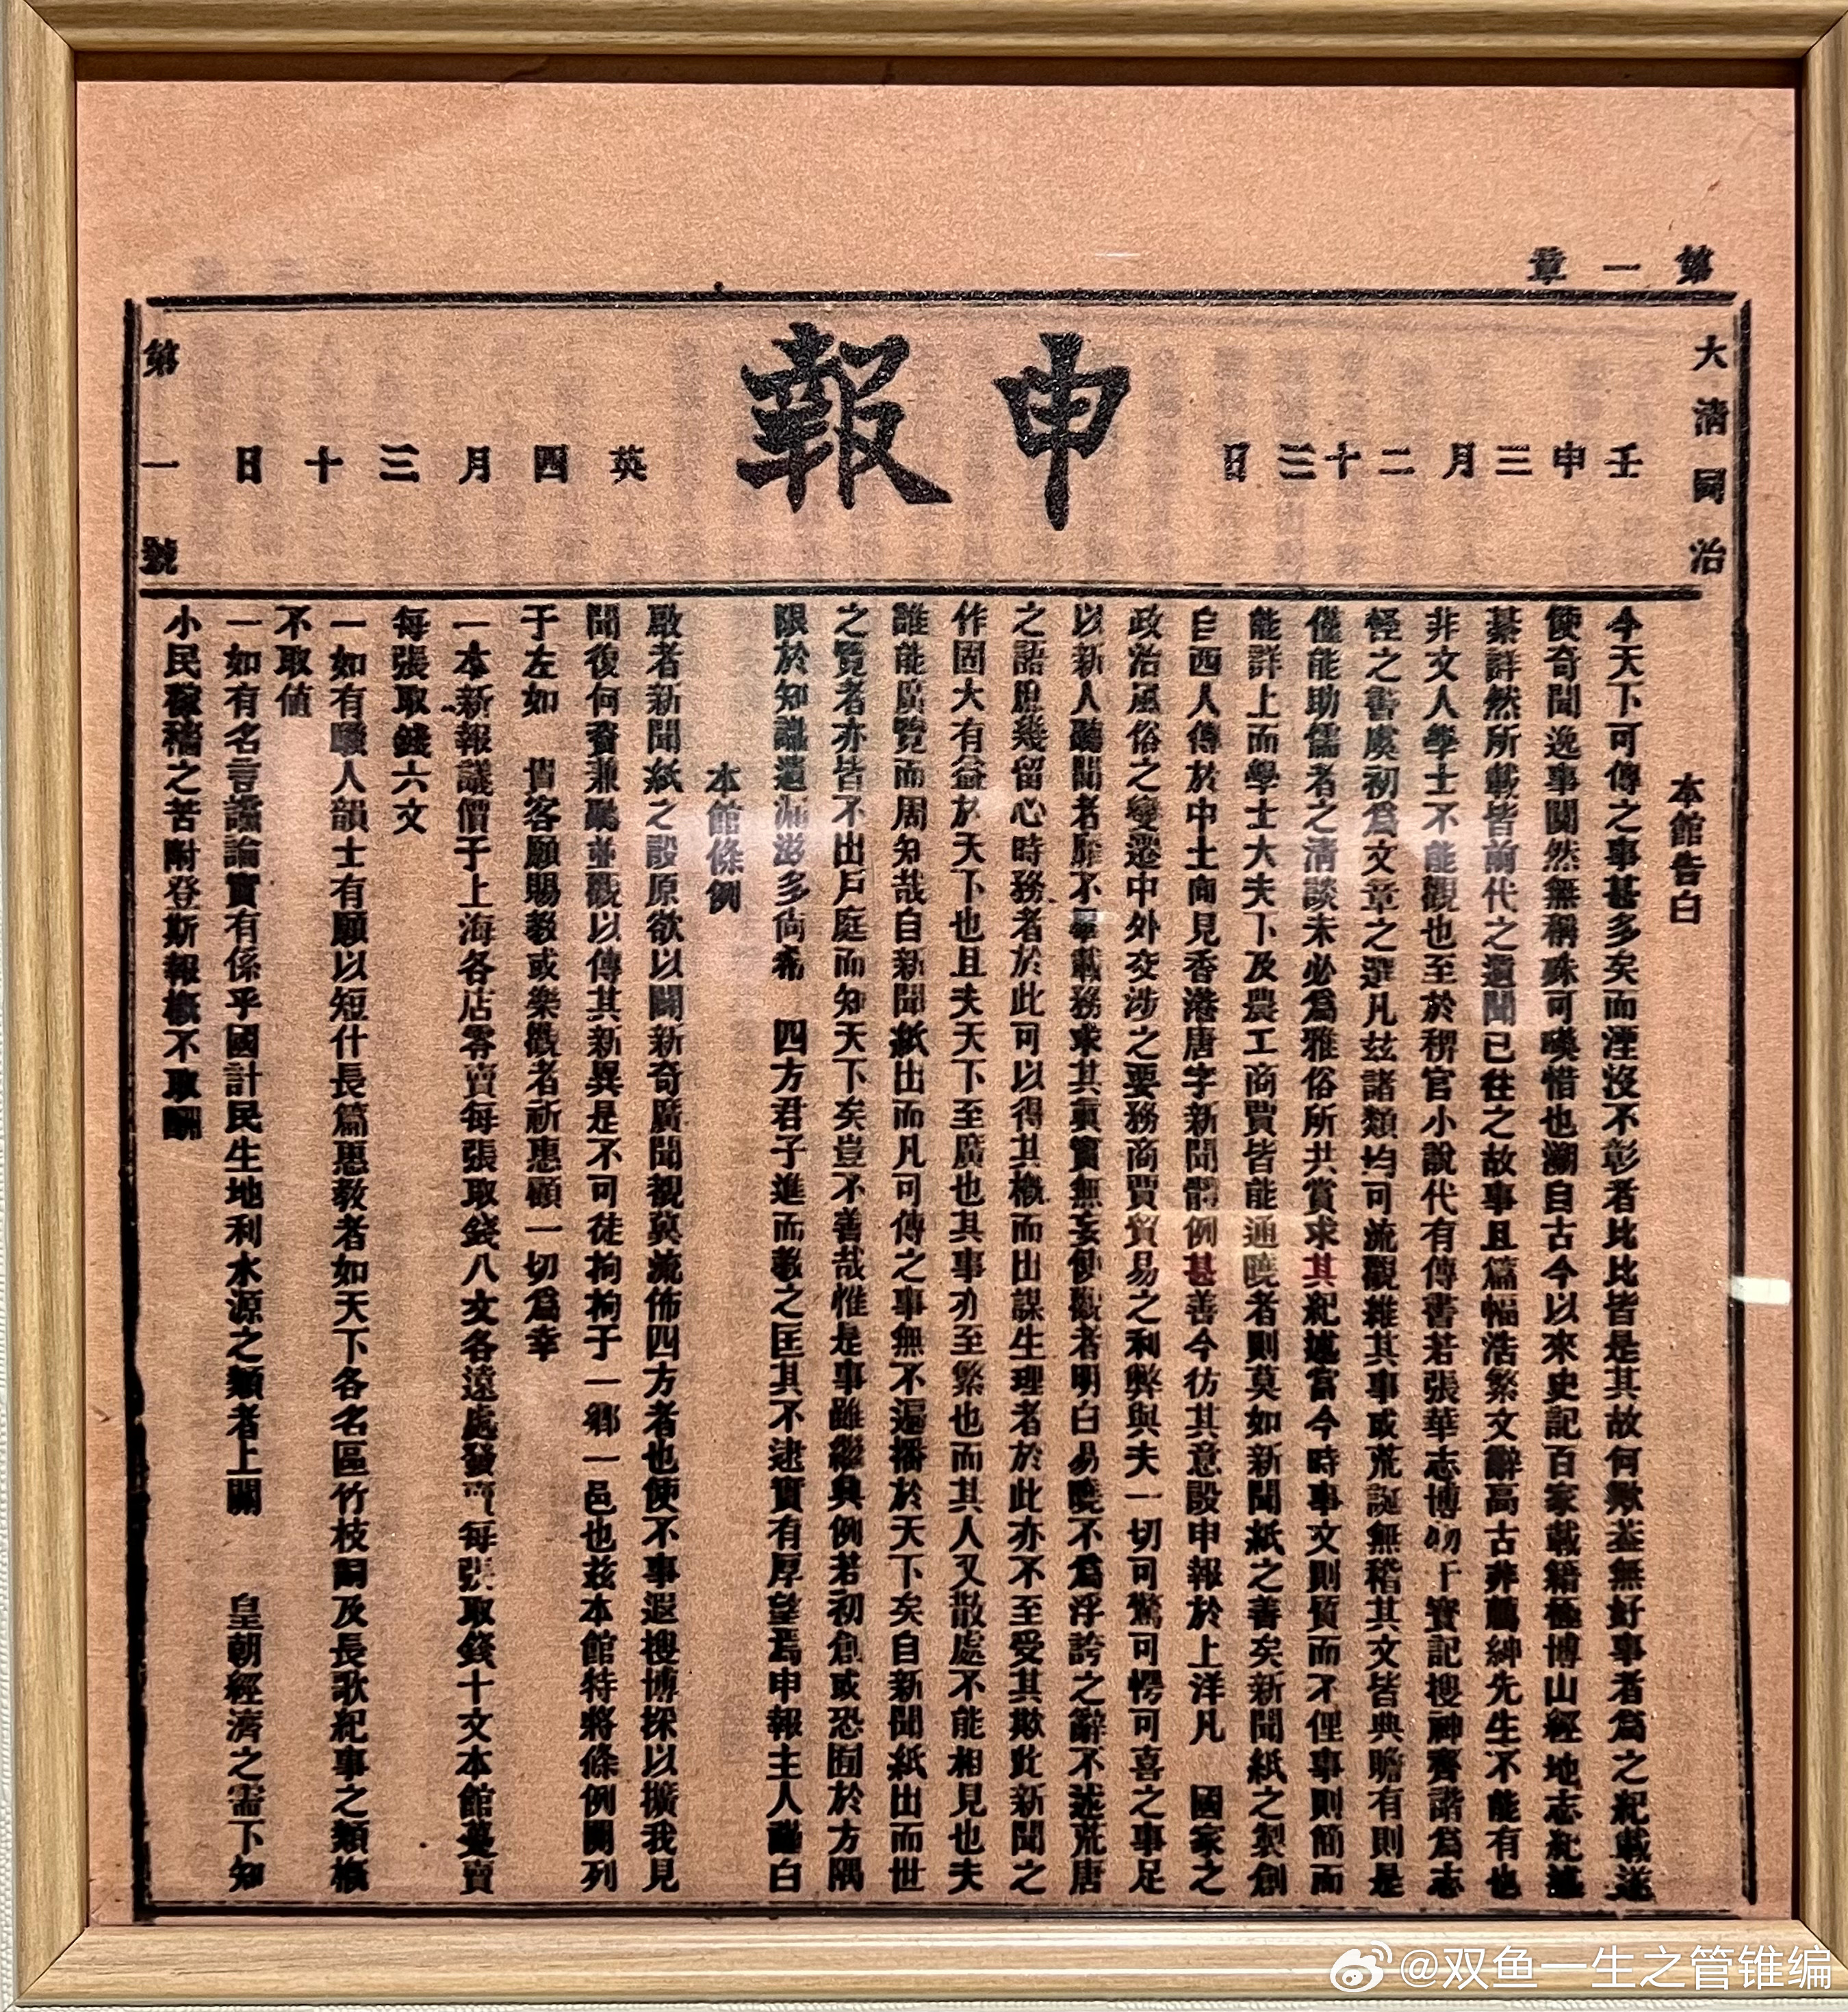 第一章
大清同治
壬申三月二十三日
申報
英四月三十日
第一號
本館告白
今天下可傳之事甚多矣而湮沒不彰者比比皆是其故何歟蓋無好事者為之紀載遂
使奇聞逸事闃然無稱殊可嘆惜也溯自古今以來史記百家載籍極博山經地志紀述
綦詳然所載皆前代之遺聞已往之故事且篇幅浩繁文辭高古非薦紳先生不能有也
非文人學士不能觀也至於稗官小說代有傳書若張華志博物干寶記搜神齊諧為志
怪之書虞初為文章之選凡茲諸類均可流觀維其事或荒誕無稽其文皆典贍有則是
僅能助儒者之清談未必為雅俗所共賞求其紀述當今時事文則質而不俚事則簡而
能詳上而學士大夫下及農工商賈皆能通曉者則莫如新聞紙之善矣新聞紙之製創
自西人傳於中土向見香港唐字新聞體例甚善今仿其意設申報於上洋凡 國家之
政治風俗之變遷中外交涉之要務商賈貿易之利弊與夫一切可驚可愕可喜之事足
以新人聽聞者靡不畢載務求其真實無妄使觀者明白易曉不為浮誇之辭不述荒唐
之語庶幾留心時務者於此可以得其概而出謀生理者於此亦不至受其欺此新聞之
作固大有益於天下也且夫天下至廣也其事亦至繁也而其人又散處不能相見也夫
誰能廣覽而周知哉自新聞紙出而凡可傳之事無不遍播於天下矣自新聞紙出而世
之覽者亦皆不出戶庭而知天下矣豈不善哉惟是事雖繼興例若初創或恐囿於方隅
限於知識遺漏滋多尚希 四方君子進而教之匡其不逮實有厚望焉申報主人謹白
本館條例
啟者新聞紙之設原欲以闢新奇廣聞覩莫流佈四方者也使不事遐搜博採以擴我見
聞復何資兼聽並觀以傳其新異是不可徒拘拘于一鄉一邑也茲本館特將條例開列
于左如 貴客願賜教或樂觀者祈惠顧一切為幸
一本新報議價于上海各店零賣每張取錢八文各遠處發賣每張取錢十文本館躉賣
每張取錢六文
一如有騷人韻士有願以短什長篇惠教者如天下各名區竹枝詞及長歌紀事之類概
不取值
一如有名言讜論實有係乎國計民生地利水源之類者上關 皇朝經濟之需下知
小民稼穡之苦附登斯報概不取酬
@双鱼一生之管锥编